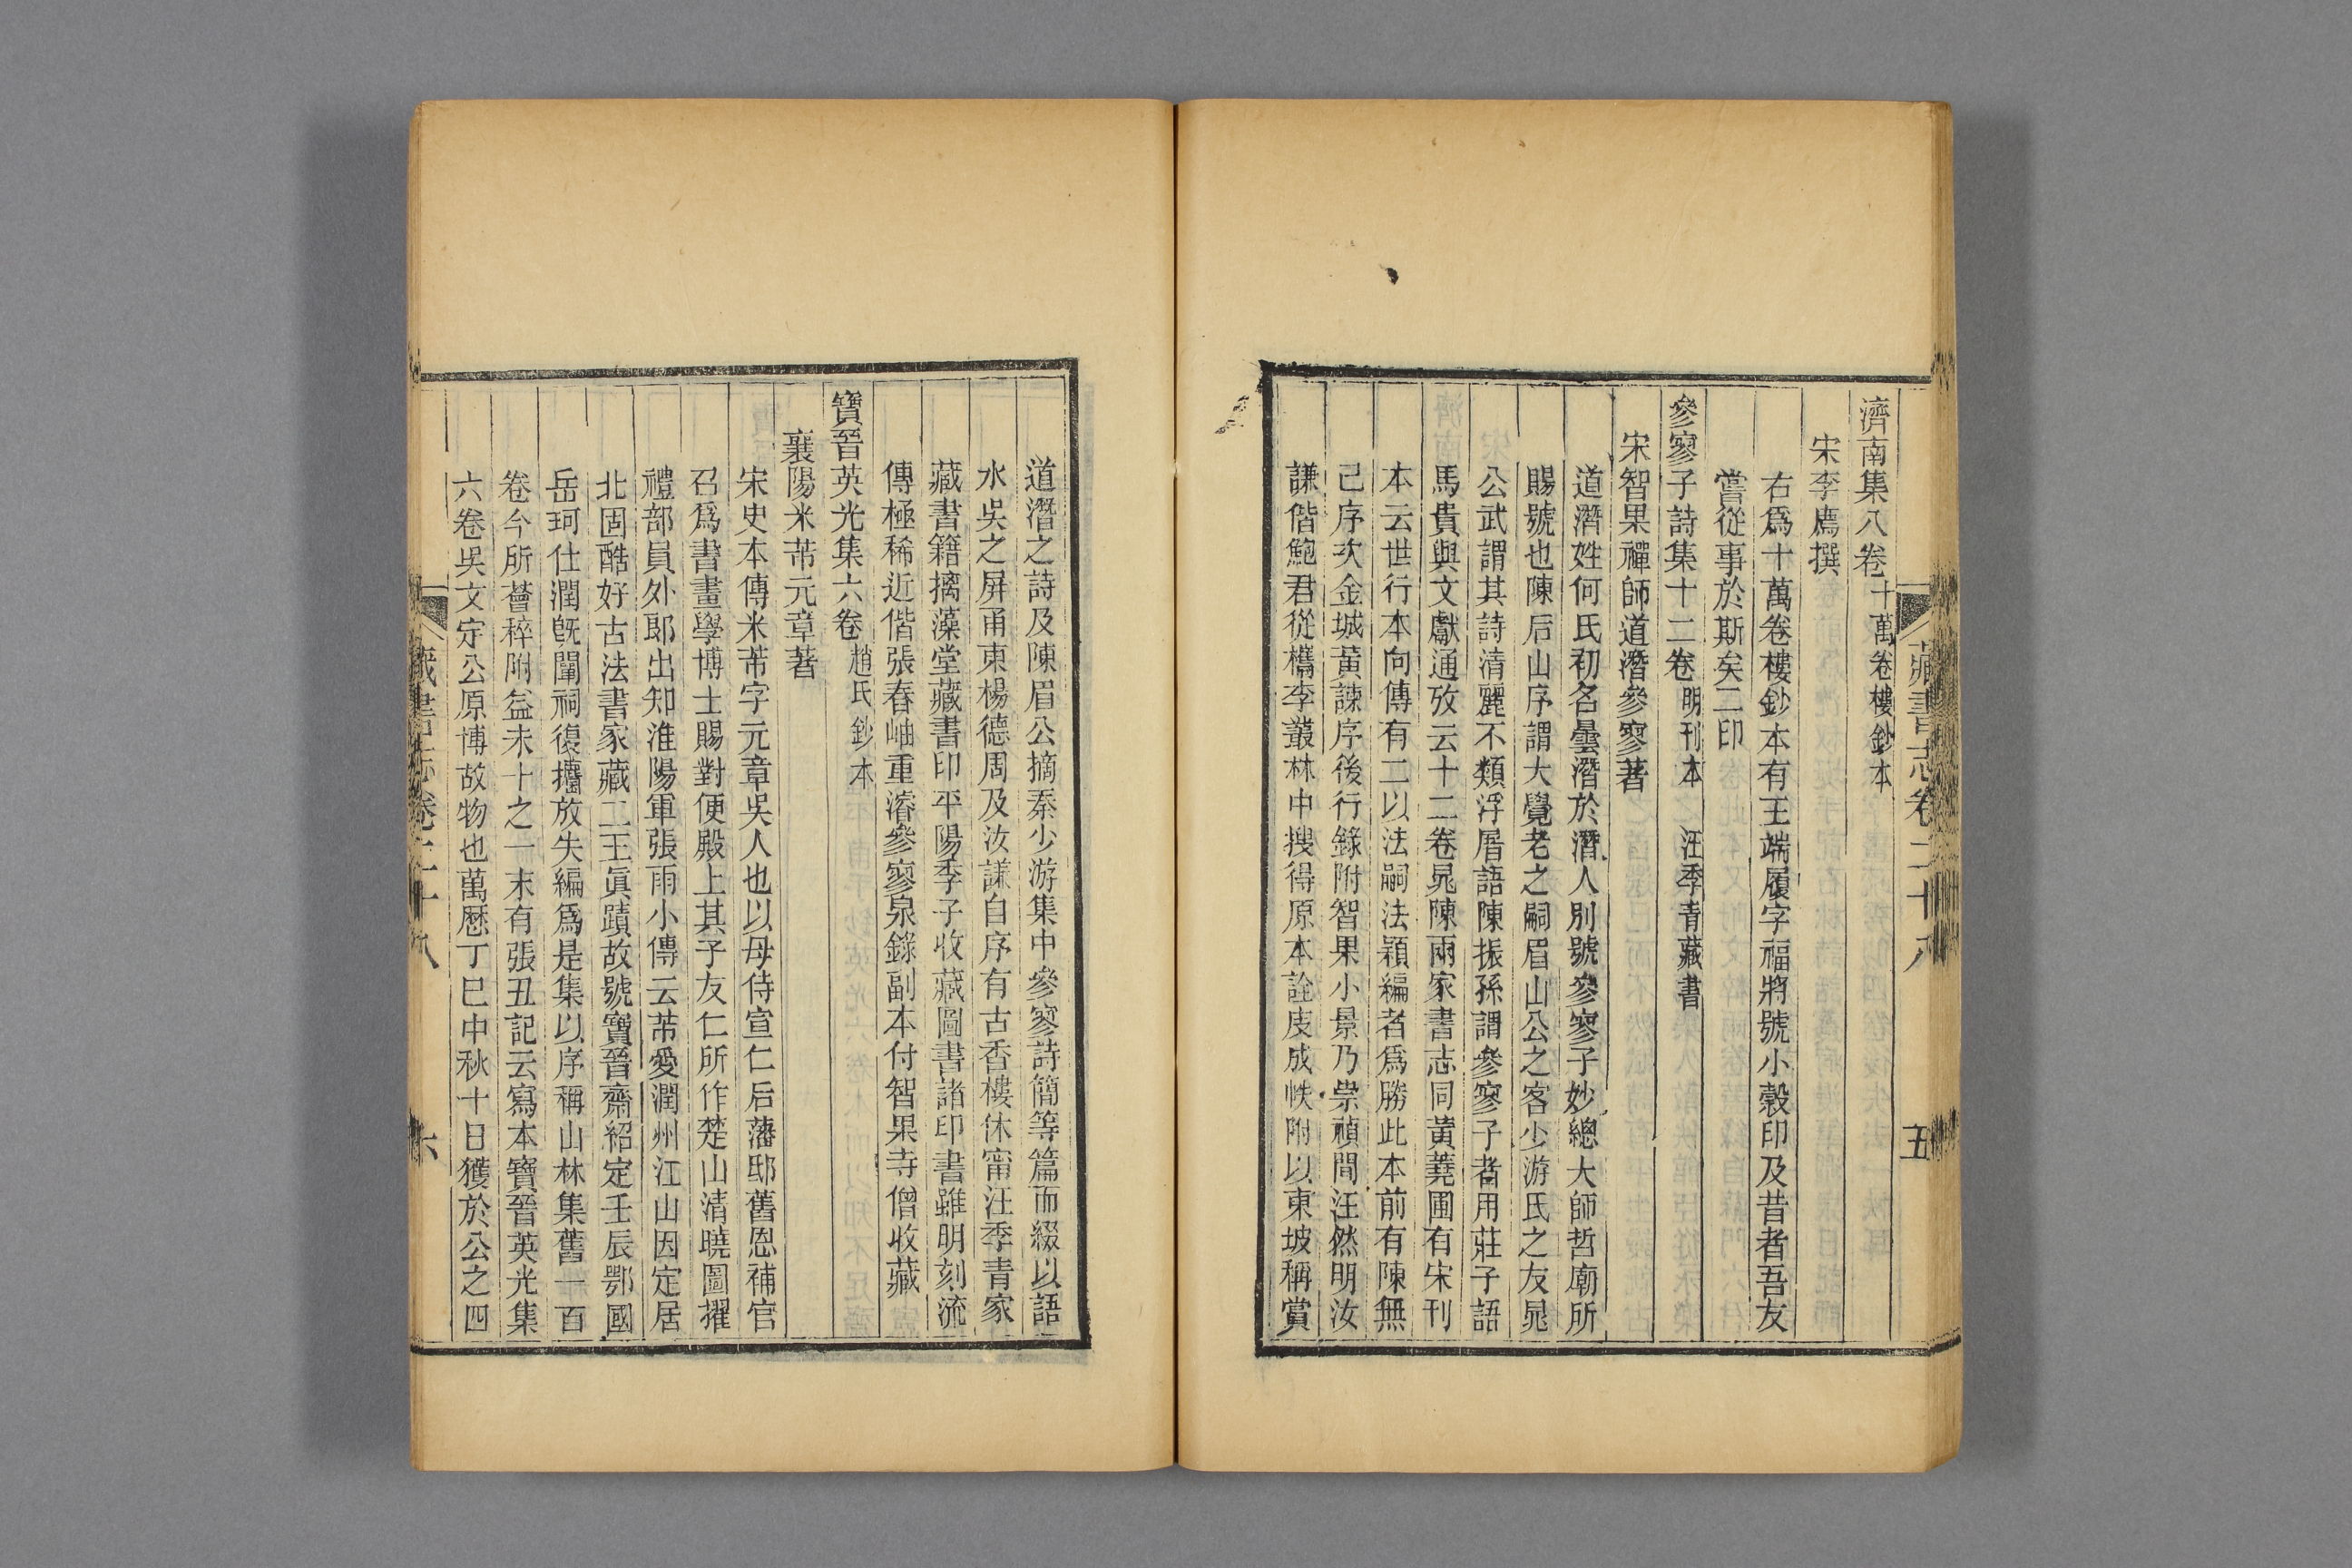 濟南集八卷十萬卷樓鈔本
宋李廌撰
右爲十萬卷樓鈔本有王端履字福將號小穀印及昔者吾友
嘗從事於斯矣二印
參寥子詩集十二卷明刊本 汪季青藏書
宋智果禪師道潛參寥著
道潛姓何氏初名曇潛於潛人別號參寥子妙總大師哲廟所
賜號也陳后山序謂大覺老之嗣眉山公之客少游氏之友晁
公武謂其詩清麗不類浮屠語陳振孫謂參寥子者用莊子語
馬貴與文獻通攷云十二卷晁陳兩家書志同黃蕘圃有宋刊
本云世行本向傳有二以法嗣法穎編者爲勝此本前有陳無
己序次金城黃諫序後行錄附智果小景乃崇禎間汪然明汝
謙偕鮑君從檇李叢林中搜得原本詮庋成帙附以東坡稱賞
藏書志卷二十八
五
道潛之詩及陳眉公摘秦少游集中參寥詩簡等篇而綴以語
水吳之屏甬東楊德周及汝謙自序有古香樓休甯汪季青家
藏書籍摛藻堂藏書印平陽季子收藏圖書諸印書雖明刻流
傳極稀近偕張春岫重濬參寥泉錄副本付智果寺僧收藏
寶晉英光集六卷趙氏鈔本
襄陽米芾元章著
宋史本傳米芾字元章吳人也以母侍宣仁后藩邸舊恩補官
召爲書畫學博士賜對便殿上其子友仁所作楚山清曉圖擢
禮部員外郎出知淮陽軍張雨小傳云芾愛潤州江山因定居
北固酷好古法書家藏二王眞蹟故號寶晉齋紹定壬辰鄂國
岳珂仕潤旣闡祠復攟放失編爲是集以序稱山林集舊一百
卷今所薈稡附益未十之一末有張丑記云寫本寶晉英光集
六卷吳文定公原博故物也萬厯丁巳中秋十日獲於公之四
藏書志卷二十八
六